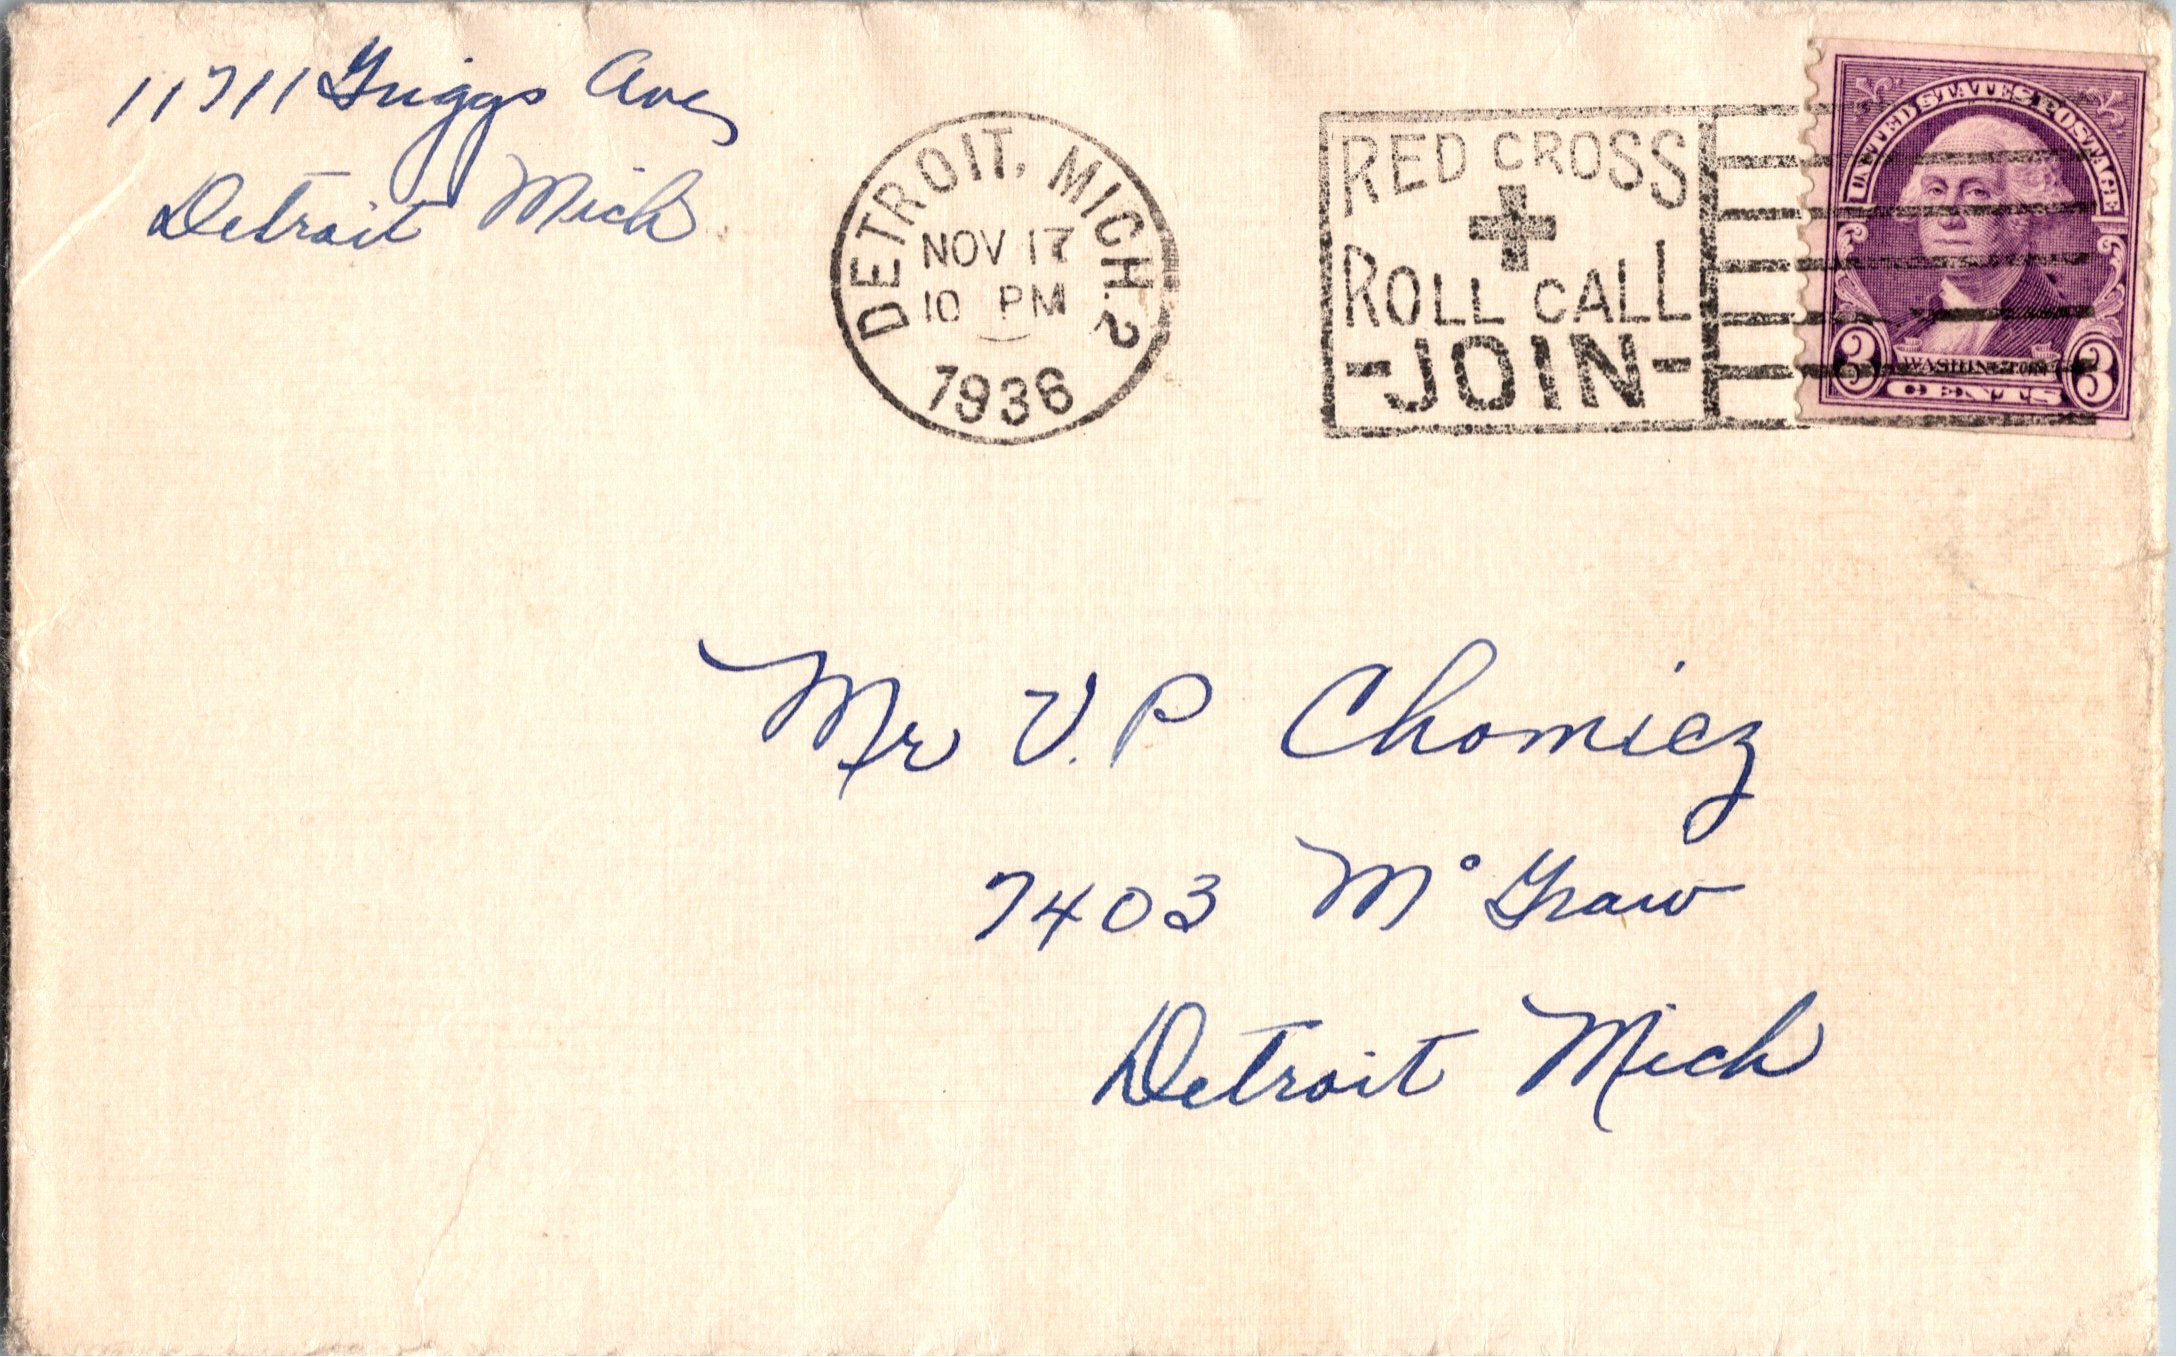 11711 Griggs Ave,
Detroit Mich.
DETROIT, MICH. 2
NOV 17
10 PM
1936
RED CROSS
ROLL CALL
-JOIN-
UNITED STATES POSTAGE
WASHINGTON
3 CENTS 3
Mr V. P Chomicz
7403 Mc Graw
Detroit Mich